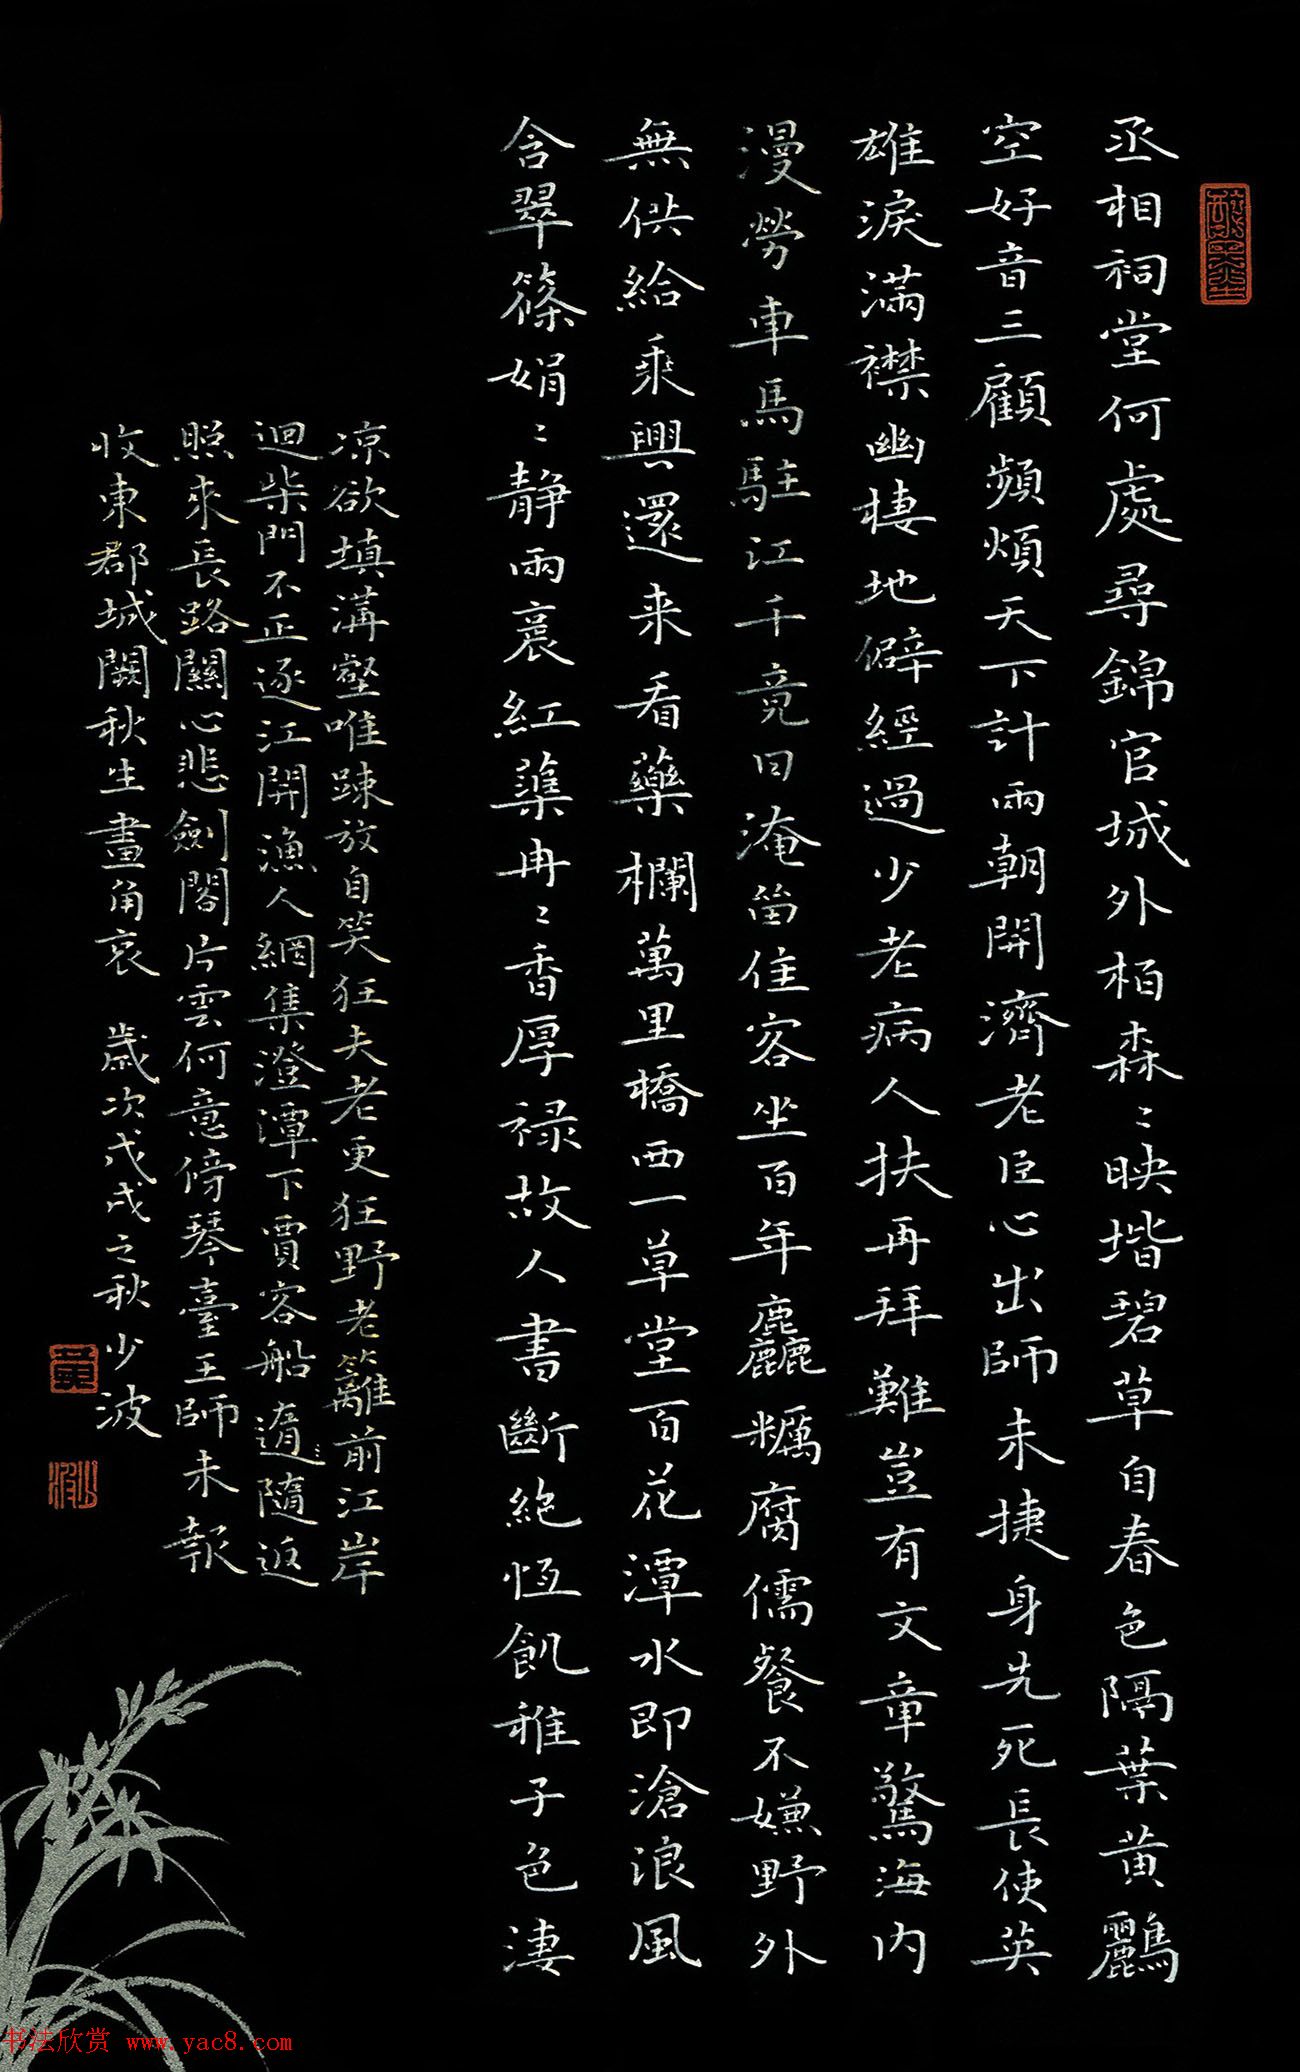 丞相祠堂何處尋錦官城外柏森〻映堦碧草自春色隔葉黄鸝
空好音三顧頻煩天下計兩朝開濟老臣心出師未捷身先死長使英
雄淚滿襟幽棲地僻經過少老病人扶再拜難豈有文章驚海内
漫勞車馬駐江干竟日淹留佳客坐百年麤糲腐儒餐不嫌野外
無供給乘興還来看藥欄萬里橋西一草堂百花潭水即滄浪風
含翠篠娟〻静雨裛紅蕖冉〻香厚禄故人書斷絶恆飢稚子色淒
凉欲填溝壑唯踈放自笑狂夫老更狂野老籬前江岸
迴柴門不正逐江開漁人網集澄潭下賈客船隨返
照來長路關心悲劍閣片雲何意傍琴臺王師未報
收東郡城闕秋生畫角哀 歲次戊戌之秋少波
黄
书法欣赏 www.yac8.com